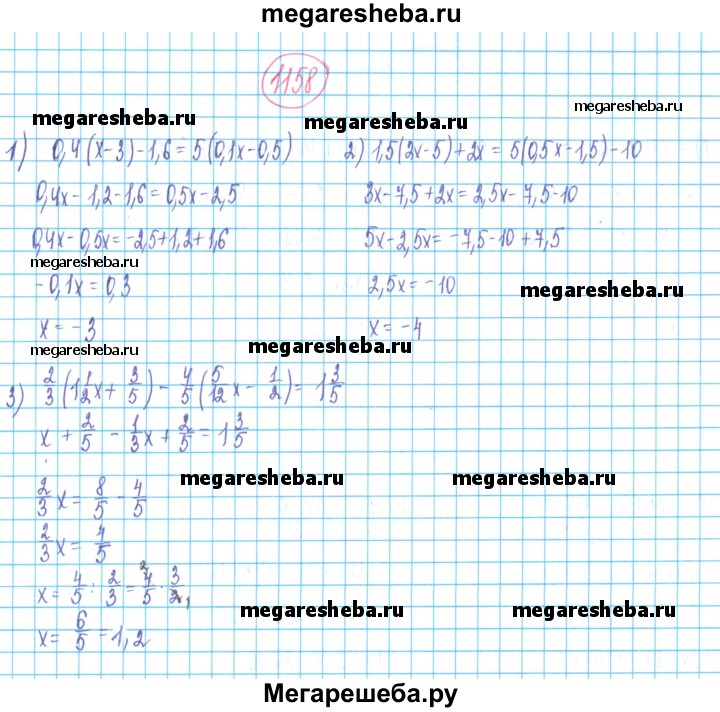 megaresheba.ru
1158
megaresheba.ru megaresheba.ru megaresheba.ru
1) 0,4(x-3)-1,6=5(0,1x-0,5)
0,4x-1,2-1,6=0,5x-2,5
0,4x-0,5x=-2,5+1,2+1,6
megaresheba.ru
-0,1x=0,3
x=-3
megaresheba.ru
2) 1,5(2x-5)+2x=5(0,5x-1,5)-10
3x-7,5+2x=2,5x-7,5-10
5x-2,5x=-7,5-10+7,5
2,5x=-10
megaresheba.ru
x=-4
megaresheba.ru
3) 2/3(1 1/2x+3/5)-4/5(5/12x-1/2)=1 3/5
x+2/5-1/3x+2/5=1 3/5
megaresheba.ru megaresheba.ru
2/3x=8/5-4/5
2/3x=4/5
x=4/5:2/3=4/5·3/2
megaresheba.ru megaresheba.ru
x=6/5=1,2
Мегарешеба.ру